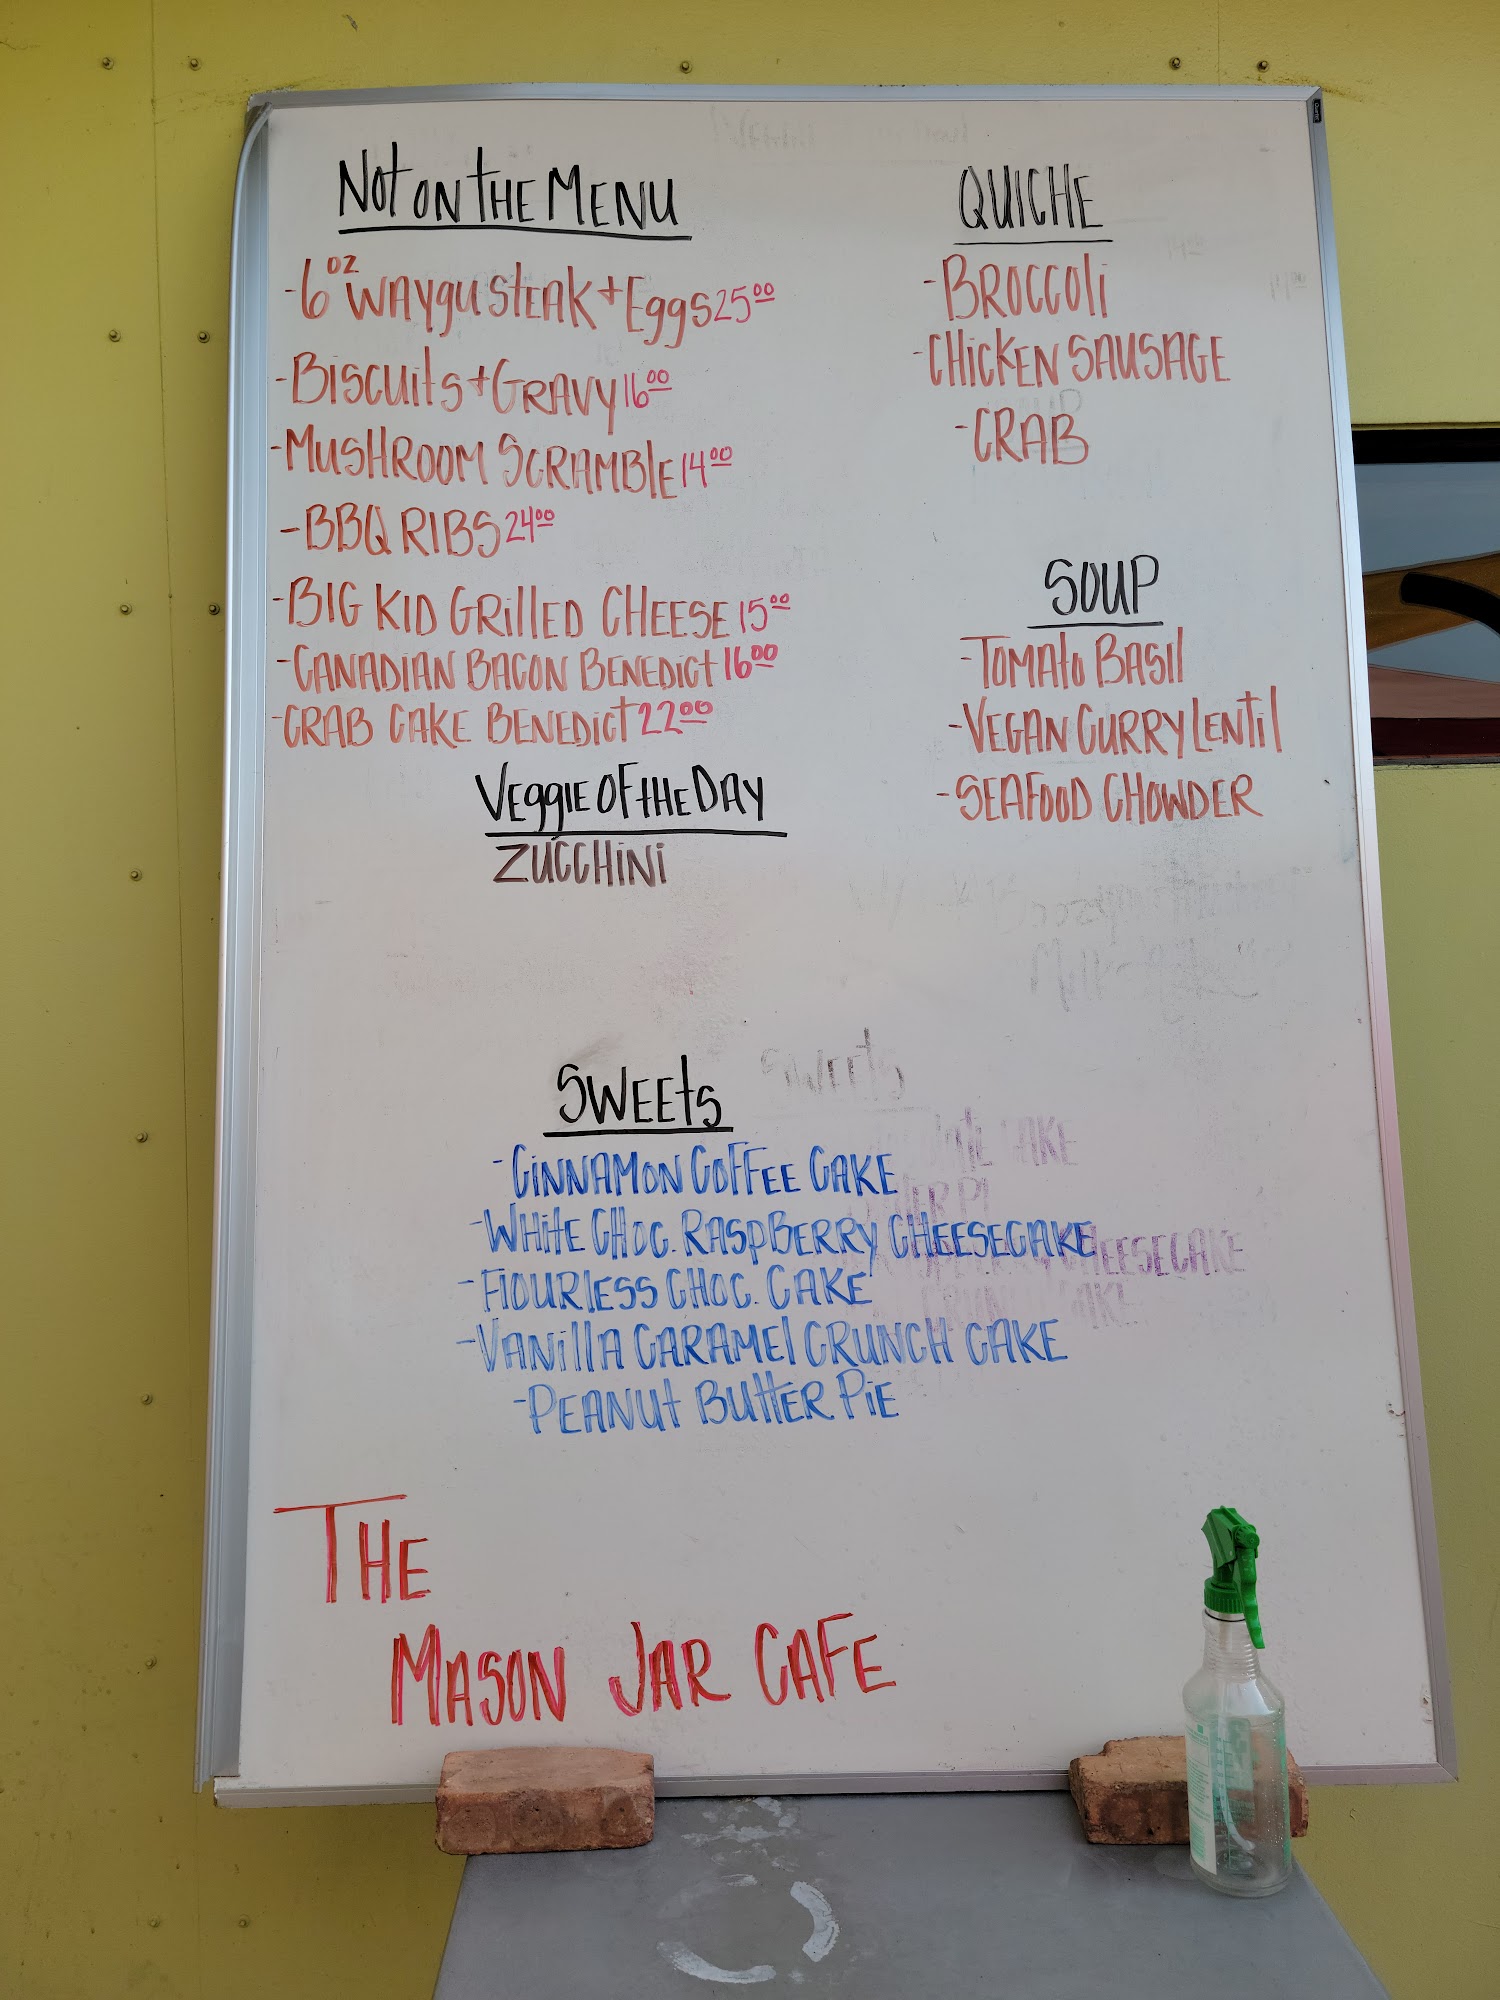 NOT ON THE MENU
-6 OZ WAYGU STEAK + EGGS 25 00
-BISCUITS + GRAVY 16 00
-MUSHROOM SCRAMBLE 14 00
-BBQ RIBS 24 00
-BIG KID GRILLED CHEESE 15 00
-CANADIAN BACON BENEDICT 16 00
-CRAB CAKE BENEDICT 22 00
VEGGIE OF THE DAY
ZUCCHINI
QUICHE
-BROCCOLI
-CHICKEN SAUSAGE
-CRAB
SOUP
-TOMATO BASIL
-VEGAN CURRY LENTIL
-SEAFOOD CHOWDER
SWEETS
SWEETS
-CINNAMON COFFEE CAKE
-WHITE CHOC. RASPBERRY CHEESECAKE
CHEESECAKE
-FLOURLESS CHOC. CAKE
-VANILLA CARAMEL CRUNCH CAKE
-PEANUT BUTTER PIE
THE
MASON JAR CAFE